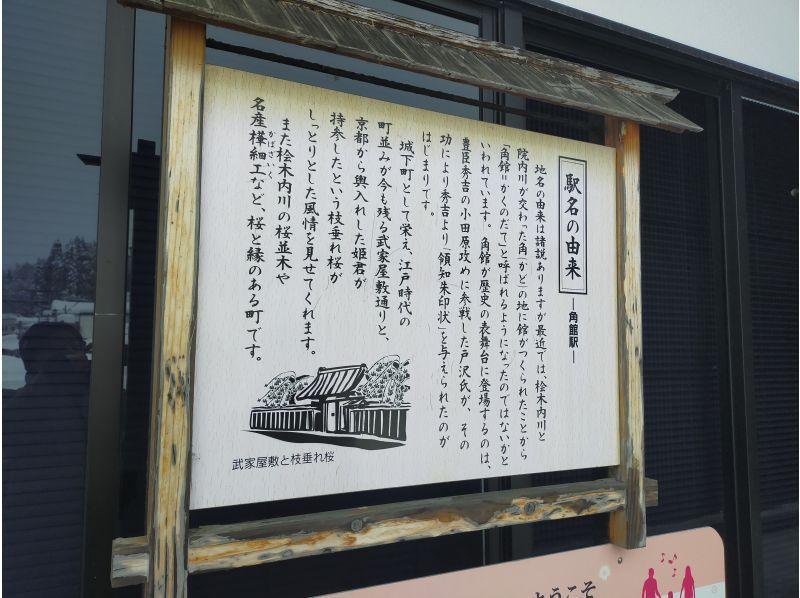 駅名の由来
―角館駅―
地名の由来は諸説ありますが最近では、桧木内川と
院内川が交わった角「かど」の地に館がつくられたことから
「角館=かくのだて」と呼ばれるようになったのではないかと
いわれています。角館が歴史の表舞台に登場するのは、
豊臣秀吉の小田原攻めに参戦した戸沢氏が、その
功により秀吉より「領知朱印状」を与えられたのが
はじまりです。
城下町として栄え、江戸時代の
町並みが今も残る武家屋敷通りと、
京都から輿入れした姫君が
持参したという枝垂れ桜が
しっとりとした風情を見せてくれます。
また桧木内川の桜並木や
かばざいく
名産樺細工など、桜と縁のある町です。
武家屋敷と枝垂れ桜
ようこそ